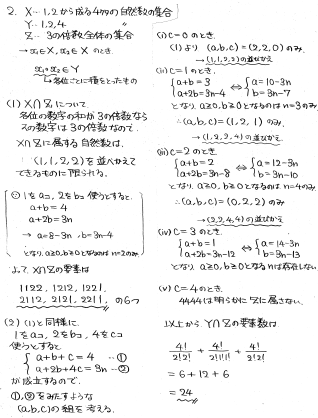 2. X… 1,2から成る4ケタの自然数の集合
Y… 1,2,4 〃
Z… 3の倍数全体の集合
→ x₁∈X, x₂∈X のとき.
x₁∘x₂∈Y
→各位ごとに積をとったもの
(1) X∩Zについて
各位の数字の和が3の倍数なら
その数字は3の倍数なので、
X∩Zに属する自然数は、
(1,1,2,2)を並べかえて
できるものに限られる。
1をaコ, 2をbコ使うとすると.
a+b=4
a+2b=3n
→ a=8-3n, b=3n-4
となり a≧0, b≧0となるのはn=2のみ
よって X∩Zの要素は
1122, 1212, 1221,
2112, 2121, 2211, の6つ
(2) (1)と同様に
1をaコ, 2をbコ, 4をcコ
使うとすると
a+b+c=4 …①
a+2b+4c=3n …②
が成立するので、
①,②をみたすような
(a,b,c)の組を考える.
(i) c=0のとき.
(1)より (a,b,c)=(2,2,0)のみ.
→(1,1,2,2)の並びかえ
(ii) c=1のとき.
a+b=3
a+2b=3n-4
⇔
a=10-3n
b=3n-7
となり a≧0, b≧0となるのはn=3のみ
∴(a,b,c)=(1,2,1)のみ.
→(1,2,2,4)の並びかえ
(iii) c=2のとき.
a+b=2
a+2b=3n-8
⇔
a=12-3n
b=3n-10
となり a≧0, b≧0となるのはn=4のみ
∴(a,b,c)=(0,2,2)のみ.
→(2,2,4,4)の並びかえ
(iv) c=3のとき.
a+b=1
a+2b=3n-12
⇔
a=14-3n
b=3n-13
となり a≧0, b≧0となるnは存在しない
(v) c=4のとき.
4444は明らかにZに属さない.
以上から Y∩Zの要素数は
4!/2!2! + 4!/2!1!1! + 4!/2!2!
=6+12+6
=24